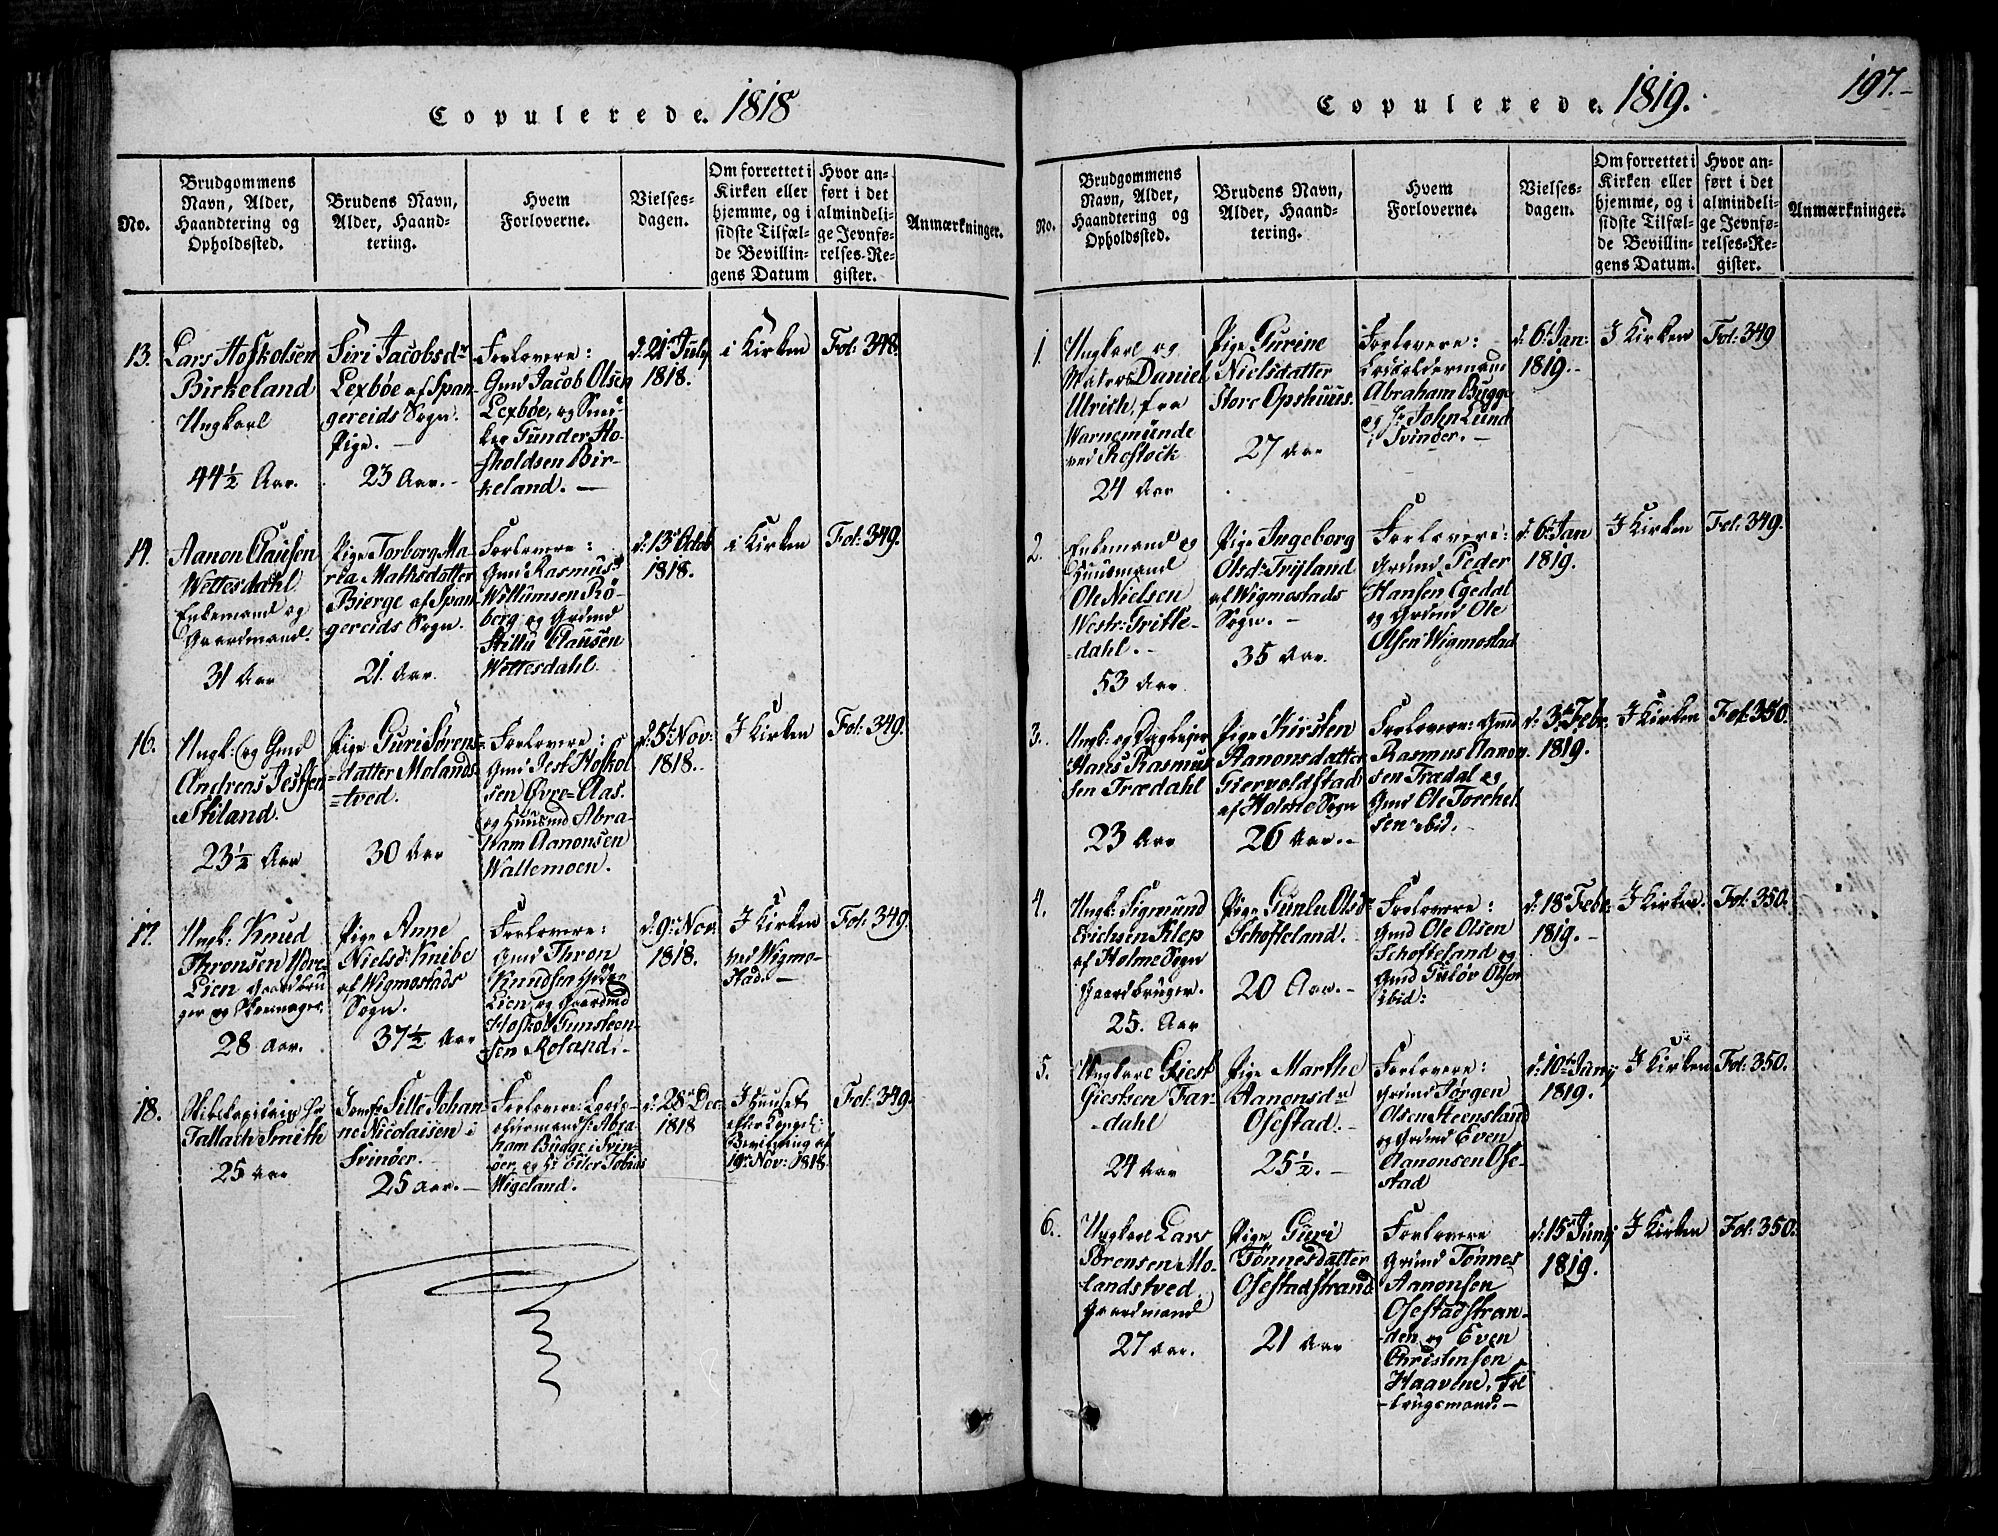 Copulerede. 1818
No.
Brudgommens
Navn, Alder,
Haandtering og
Opholdssted.
Brudens Navn,
Alder, Haand-
tering.
Hvem
Forloverne.
Vielses-
dagen.
Om forrettet i
Kirken eller
hjemme, og i
sidste Tilfæl-
de Bevillin-
gens Datum
Hvor an-
ført i det
almindeli-
ge Jevnfø-
relses-Re-
gister.
Anmærkninger.
13.
Lars Hoskolsen
Birkeland
Ungkarl
44½ Aar.
Siri Jacobsdr
Lexbøe af Span-
gereids Sogn.
Pige. -
23 Aar. -
Forlovere:
Gmd Jacob Olsen
Lexbøe, og
Gunder Ho-
skoldsen Bir-
keland. -
d: 21 July
1818.
i Kirken
Fol: 348.
14.
Aanon Clausen
Wettesdahl
Enkemand og
Gaardmand.
31 Aar
Pige Torborg Ma-
ria Mathsdatter
Bierge af Span-
gereids Sogn.
21. Aar.
Forlovere:
Gmd Rasmus
Willumsen Rö-
berg og Grdmd
Clausen
Wettesdahl.
d: 13 Octob
1818.
i Kirken
Fol: 349.
16.
Ungk: og Gmd
Andreas Jessen
Stiland.
23½ Aar
Pige Guri Sörens-
=datter Molands-
=tved.
30 Aar
Forlovere:
Gmd Jess Hoskol
sen Øvre-Aas.
og Huusmd Abra-
ham Aanonsen
Waltemoen.
d: 5t Nov:
1818.
J Kirken
Fol: 349.
17.
Ungk: Knud
Thronsen Ydre
Lien Gaardbru
ger og
28 Aar.
Pige Anne
Nielsd: Knibe
af Wigmostads
Sogn.
37½ Aar
Forlovere:
Gmd Thron
Knudsen
Lien og Gaardmd
Hoskol Gunsteen-
sen Roland.
d: 9r Nov
1818.
J Kirken
ved Wigmo-
stad. -
Fol: 349.
18.
Tallach Smith
25 Aar
Jomfr Sille Johan-
ne Nicolaisen i
Svinøer.
25 Aar. -
Forlovere:
Abra-
ham Bugge i Svin-
öer, og Hr Eiler Tobias
Wigeland.
d: 28r Dec
1818
J Huuset
efter Kongel:
Bevillning af
19r Nov: 1818.
Fol: 349.
Copulerede. 1819.
197.
No.
Brudgommens
Navn, Alder,
Haandtering og
Opholdssted.
Brudens Navn,
Alder, Haand-
tering.
Hvem
Forloverne.
Vielses-
dagen.
Om forrettet i
Kirken eller
hjemme, og i
sidste Tilfæl-
de Bevillin-
gens Datum.
Hvor an-
ført i det
almindeli-
ge Jevnfø-
relses-Re-
gister.
Anmærkninger.
1.
Ungkarl og
Matros Daniel
Ulrich, fra
Warnemünde
ved Rostock
24 Aar
Pige Gurine
Nielsdatter
Store Opshuus.
27 Aar
Forlovere:
Abraham Bugge
og Hr John Lund
i Svinöer. -
d: 6t Jan:
1819. -
J Kirken
Fol: 349
2.
Enkemand og
Huusmand
Ole Nielsen
Westr: Tritle-
-dahl. -
53 Aar
Pige Ingeborg
Olsdr Trijland
af Wigmostads
Sogn. -
35 Aar.
Forlovere:
Grdmd Peder
Hansen Egedal
og Grdmd Ole
Olsen Wigmostad
d: 6t Jan
1819.
J Kirken
Fol: 349.
3.
Ungk: og Dagleier
Hans Rasmus
sen Trædahl
23 Aar
Pige Kirsten
Aanonsdatter
Giervoldstad
af Holme Sogn
26 Aar. -
Forlovere: Gmd
Rasmus Aanon
sen Trædal og
Gmd Ole Torchel
sen ibid. -
d: 3t Febr.
1819.
J Kirken
Fol: 350.
4.
Ungk: Sigmund
Erichsen Klep
af Holme Sogn
Gaardbruger.
25. Aar
Pige Gunlu Olsdr
Schofteland. -
20 Aar. -
Forlovere:
Gmd Ole Olsen
Schofteland og
Gmd Gulöv Olsen
ibid:
d: 18r Febr
1819. -
J Kirken.
Fol: 350.
5.
Ungkarl Giest
Giestsen Far-
-dahl
24 Aar
Pige Marthe
Aanonsdr
Osestad. -
25½. -
Forlovere:
Grdmd Jörgen
Olsen Steensland
og Grdmd Even
Aanonsen Ose-
stad
d: 10de Junij
1819.
J Kirken
Fol: 350.
6.
Ungkarl Lars
Sörensen Mo-
landstved
Gaardmand
27 Aar.
Pige Guri
Tönnesdatter
Osestadstrand
21 Aar
Forlovere
Grdmd Tönnes
Aanonsen
Osestadstran-
-den og Even
Christensen
Haavene, Fol
-laugsmand. -
d: 15r Junij
1819.
J Kirken
Fol: 350.